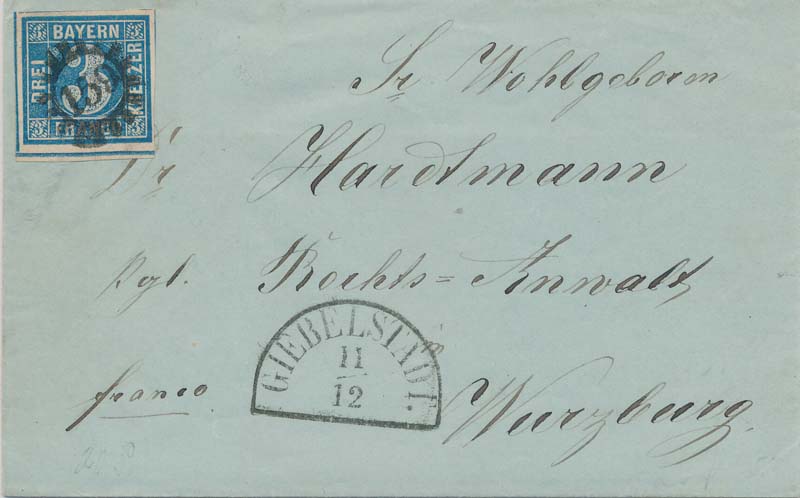 BAYERN
DREI
3
KREUZER
FRANCO
Sr. Wohlgeborn
Dr. Hardtmann
Kgl. Rechts=Anwalt
GIEBELSTADT.
11
12
franco
Wurzburg.